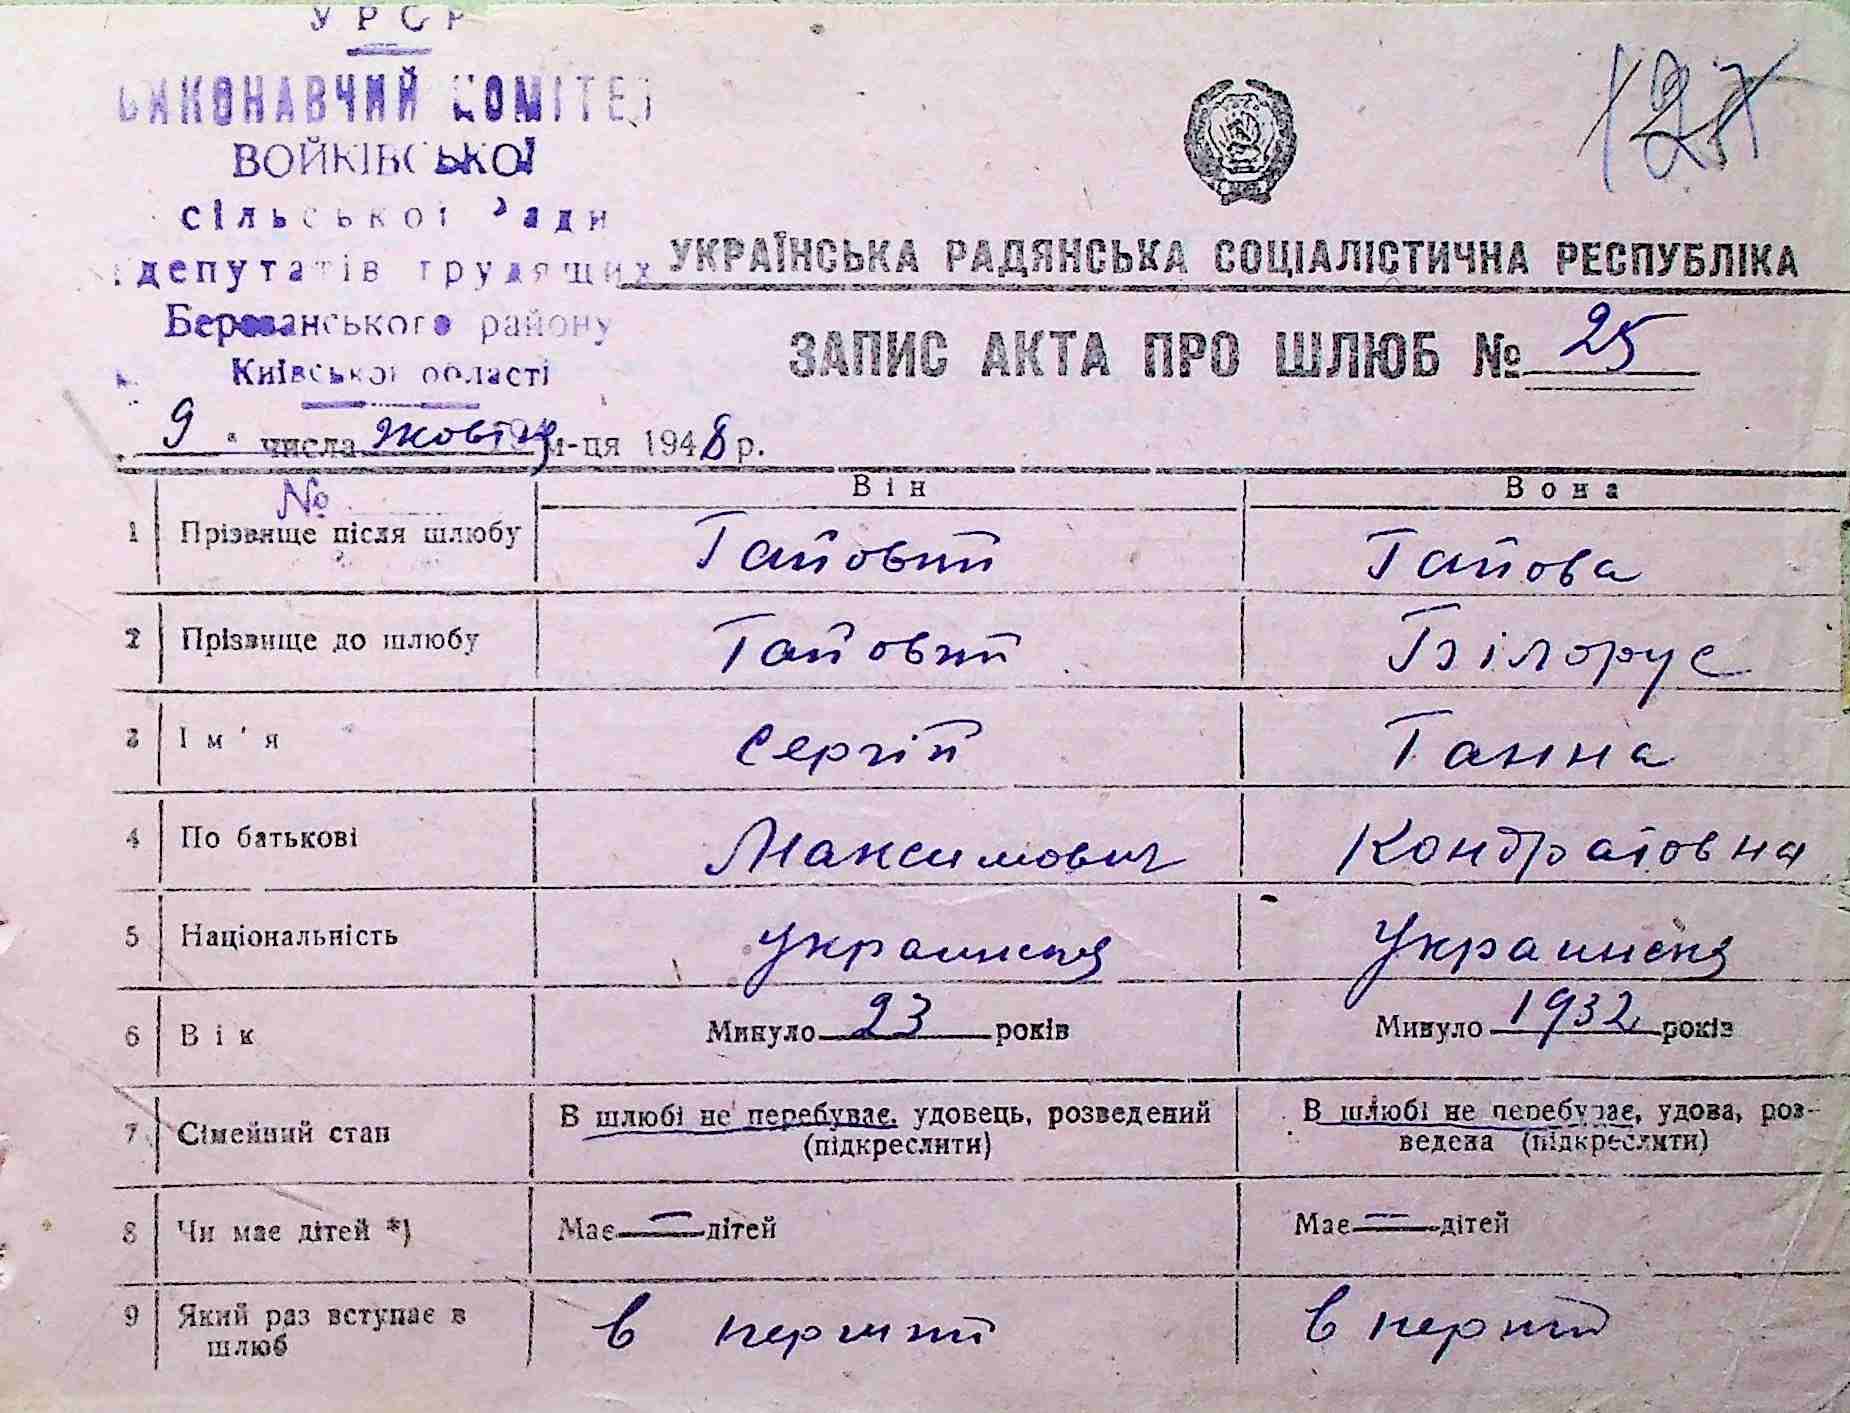 УРСР
ВИКОНАВЧИЙ КОМІТЕТ
ВОЙКІВСЬКОЇ
сільської Ради
депутатів трудящих
Березанського району
Київської області
127
УКРАЇНСЬКА РАДЯНСЬКА СОЦІАЛІСТИЧНА РЕСПУБЛІКА
ЗАПИС АКТА ПРО ШЛЮБ № 25
9 числа жовтня м-ця 1948 р.
№
Він Вона
1 Прізвище після шлюбу Гайовий Гайова
2 Прізвище до шлюбу Гайовий Білорус
3 Ім'я Сергій Ганна
4 По батькові Максимович Кондратовна
5 Національність украинская Украинская
6 Вік Минуло 23 років Минуло 1932 років
7 Сімейний стан В шлюбі не перебуває, удовець, розведений (підкреслити) В шлюбі не перебуває, удова, роз-
ведена (підкреслити)
8 Чи має дітей *) Має — дітей Має — дітей
9 Який раз вступає в шлюб в перший в перший